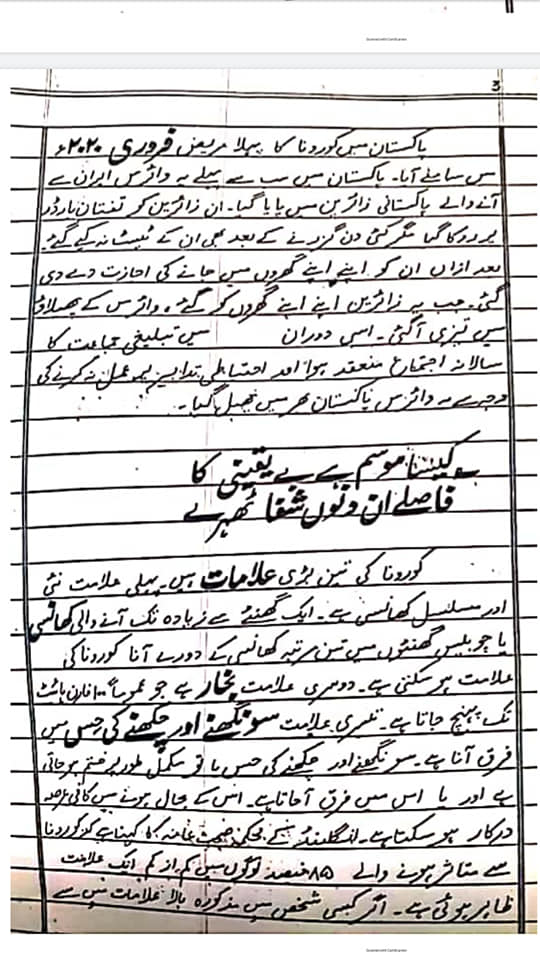 3
پاکستان میں کورونا کا پہلا مریض فروری ۲۰۲۰ء
میں سامنے آیا۔ پاکستان میں سب سے پہلے یہ وائرس ایران سے
آنے والے پاکستانی زائرین میں پایا گیا۔ ان زائرین کو تفتان بارڈر
پر روکا گیا مگر کئی دن گزرنے کے بعد بھی ان کے ٹیسٹ نہ کیے گئے۔
بعد ازاں ان کو اپنے اپنے گھروں میں جانے کی اجازت دے دی
گئی۔ جب یہ زائرین اپنے اپنے گھروں کو گئے، وائرس کے پھیلاؤ
میں تیزی آگئی۔ اسی دوران میں تبلیغی جماعت کا
سالانہ اجتماع منعقد ہوا اور احتیاطی تدابیر پر عمل نہ کرنے کی
وجہ سے یہ وائرس پاکستان بھر میں پھیل گیا۔
کیسا موسم ہے بے یقینی کا
فاصلے ان دنوں شفا ٹھہرے
کورونا کی تین بڑی علامات ہیں۔ پہلی علامت نئی
اور مسلسل کھانسی ہے۔ ایک گھنٹے سے زیادہ تک آنے والی کھانسی
یا چوبیس گھنٹوں میں تین مرتبہ کھانسی کے دورے آنا کورونا کی
علامت ہو سکتی ہے۔ دوسری علامت بخار ہے جو عموماً ۱۰۰ فارن ہائٹ
تک پہنچ جاتا ہے۔ تیسری علامت سونگھنے اور چکھنے کی حس میں
فرق آنا ہے۔ سونگھنے اور چکھنے کی حس یا تو مکمل طور پر ختم ہو جاتی
ہے اور یا اس میں فرق آجاتا ہے۔ اس کے بحال ہونے میں کافی عرصہ
درکار ہو سکتا ہے۔ انگلینڈ کے محکمہ صحت عامہ کا کہنا ہے کہ کورونا
سے متاثر ہونے والے ۸۵ فیصد لوگوں میں کم از کم ایک علامت
ظاہر ہوئی ہے۔ اگر کسی شخص میں مذکورہ بالا علامات میں سے